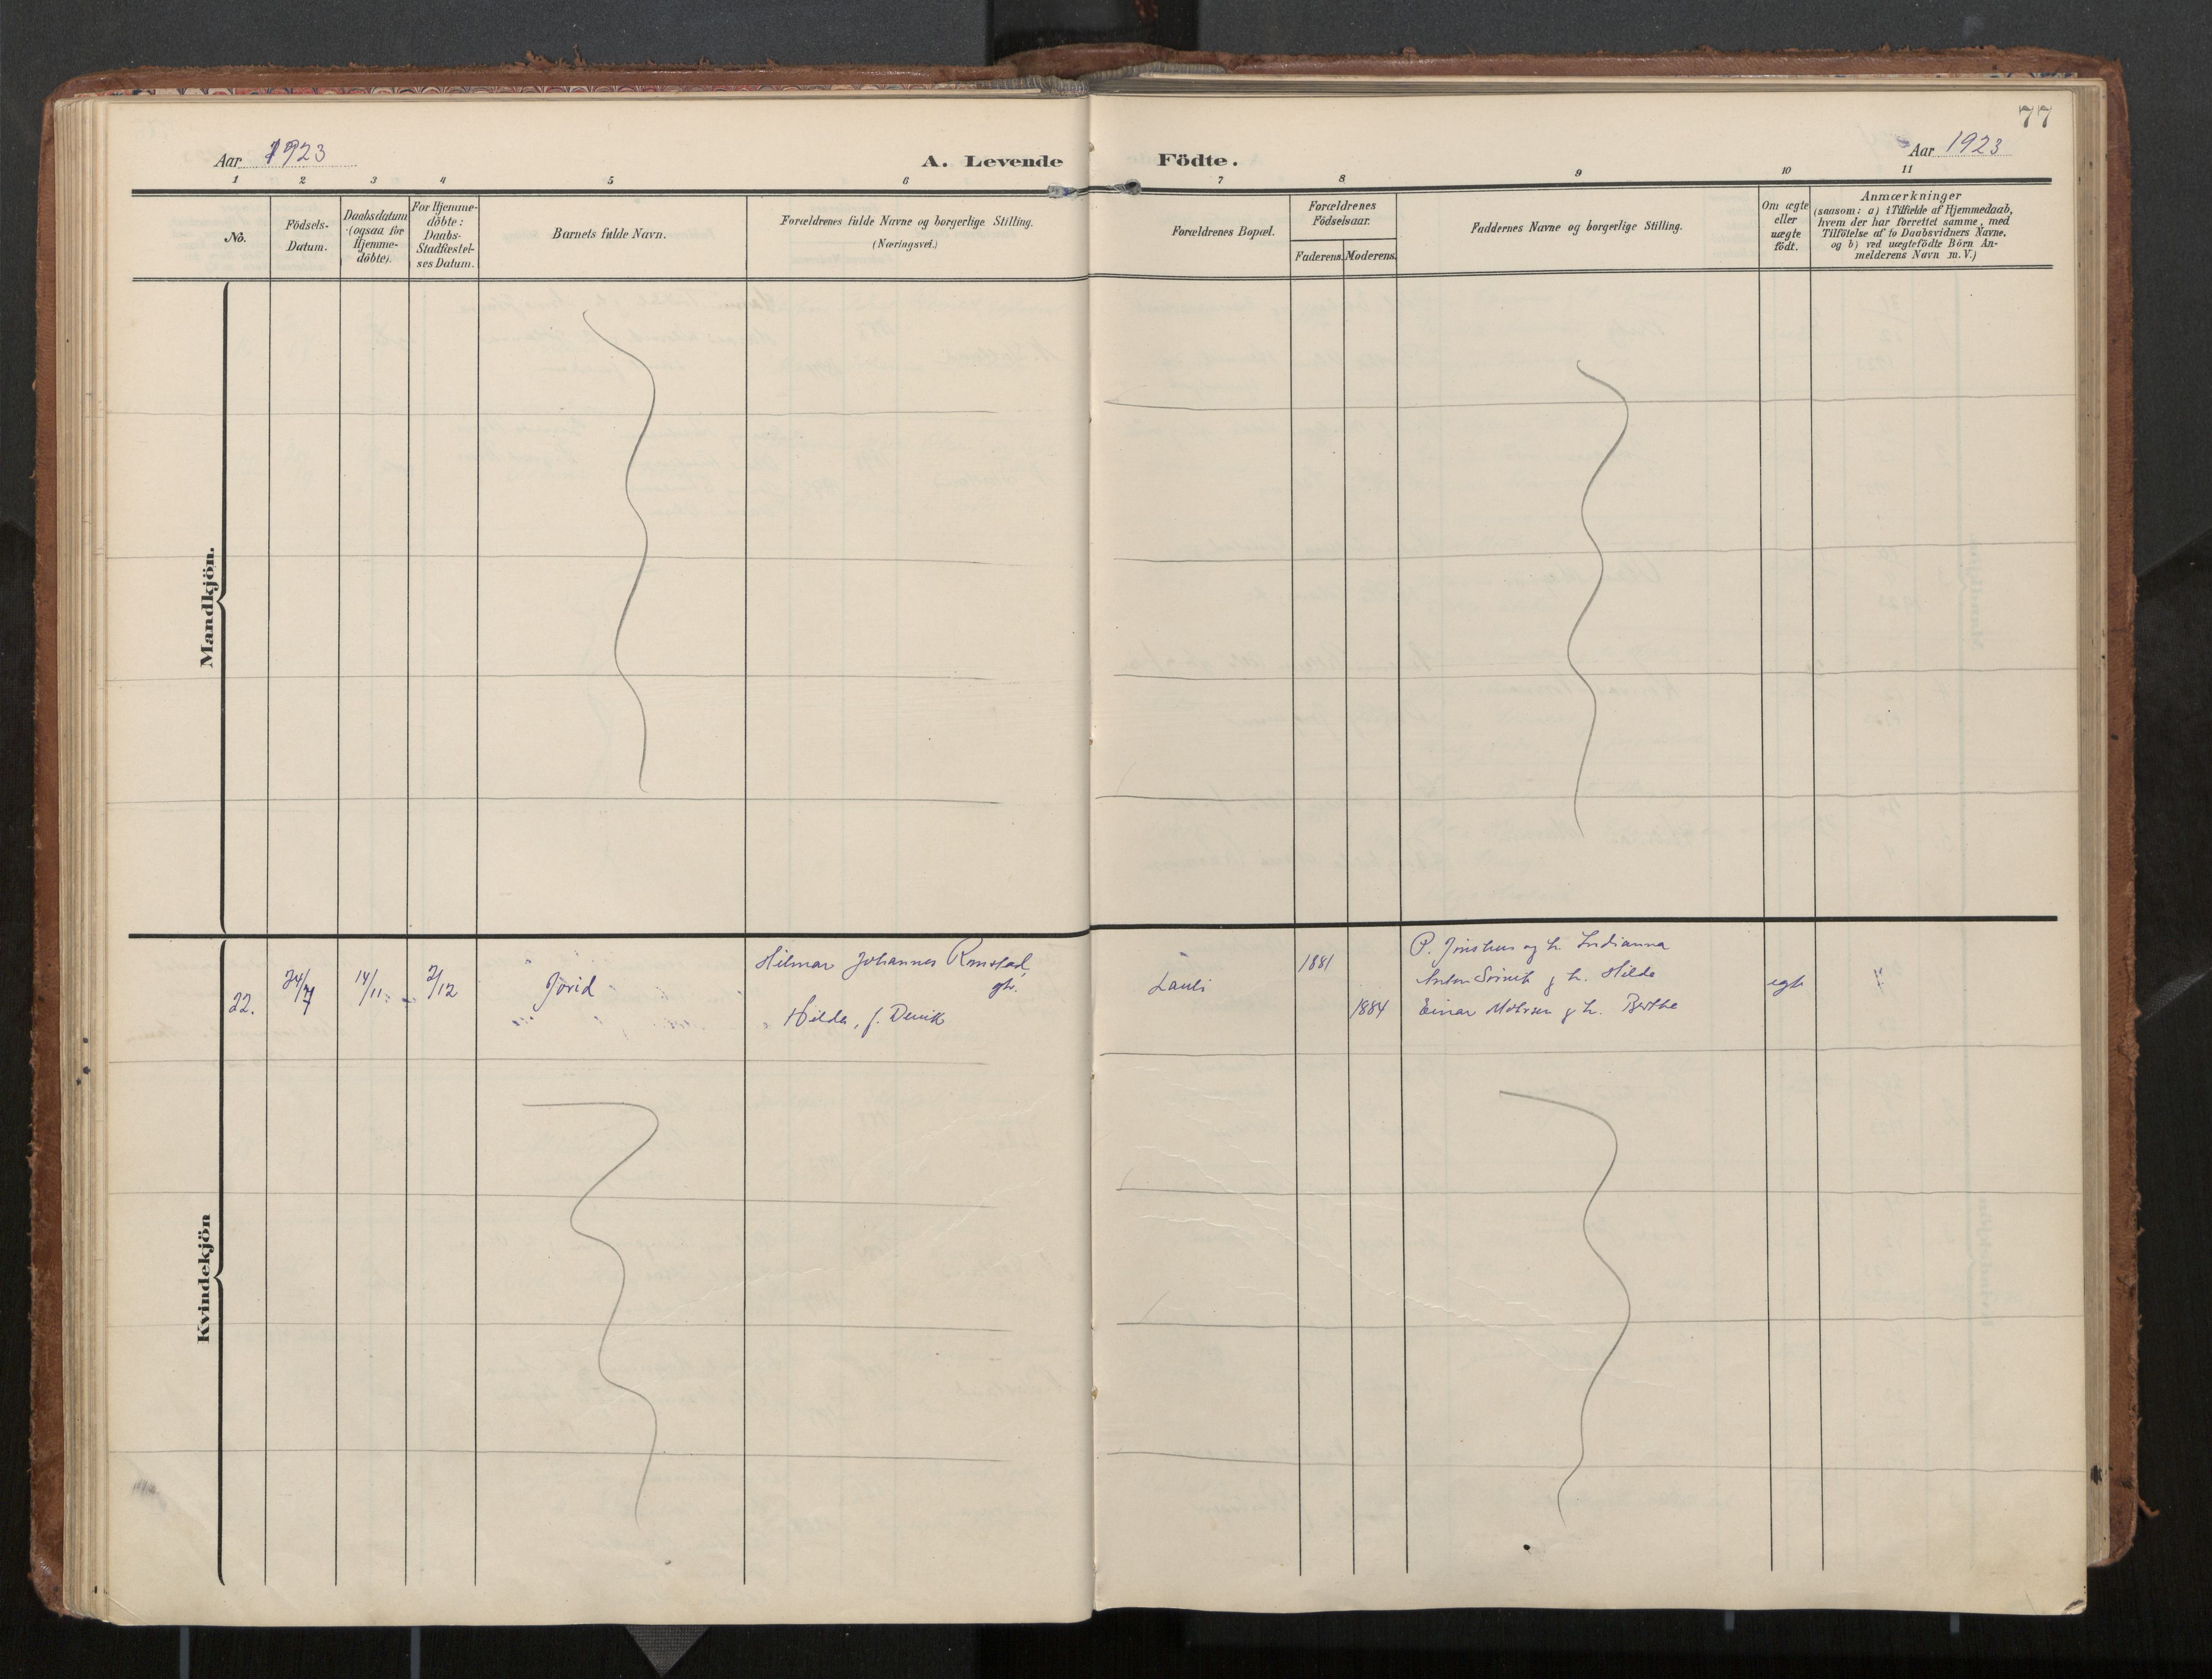 77
Aar 1923
A. Levende Födte.
Aar 1923
1 2 3 4 5 6 7 8 9 10 11
No.
Födsels-
Datum.
Daabsdatum
(ogsaa for
Hjemme-
döbte).
For Hjemme-
döbte:
Daabs-
Stadfæstel-
ses Datum.
Barnets fulde Navn.
Forældrenes fulde Navne og borgerlige Stilling.
(Næringsvei.)
Forældrenes Bopæl.
Forældrenes
Födselsaar.
Faderens. Moderens.
Faddernes Navne og borgerlige Stilling.
Om ægte
eller
uægte
födt.
Anmærkninger
(saasom: a) i Tilfælde af Hjemmedaab,
hvem der har forrettet samme, med
Tilföielse af to Daabsvidners Navne,
og b) ved uægtefödte Börn An-
melderens Navn m. V.)
Mandkjön.
Kvindekjön
22.
24/7
14/11
2/12
Jorid
Hilmar Johannes
Hilda, f.
1881
1884
P. og h. Indianna
Anton g h. Hilda
Einar g h. Berthe
egte